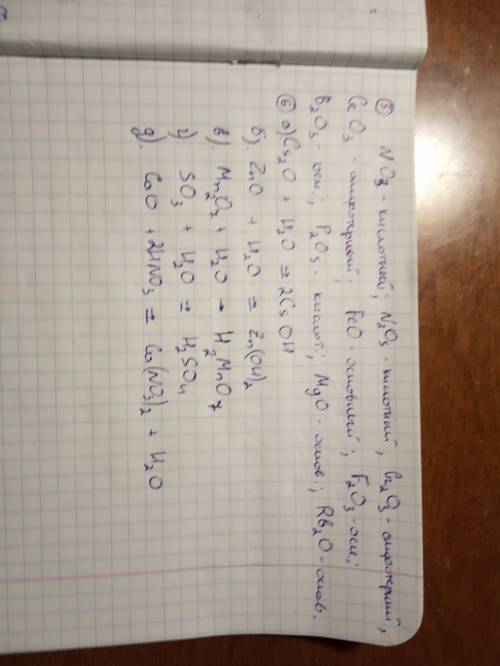 ⑤ NO3 - кислотный; N2O5 - кислотный, Cr2O3 - амфотерный,
CrO3 - амфотерный; FeO - основный; F2O3 - осн;
B2O3 - осн.; P2O5 - кислот.; MgO - основ.; Rb2O - основ.
⑥ а) Cs2O + H2O = 2CsOH
б). ZnO + H2O = Zn(OH)2
в). Mn2O7 + H2O → H2MnO7
г). SO3 + H2O = H2SO4
д). CaO + 2HNO3 = Ca(NO3)2 + H2O